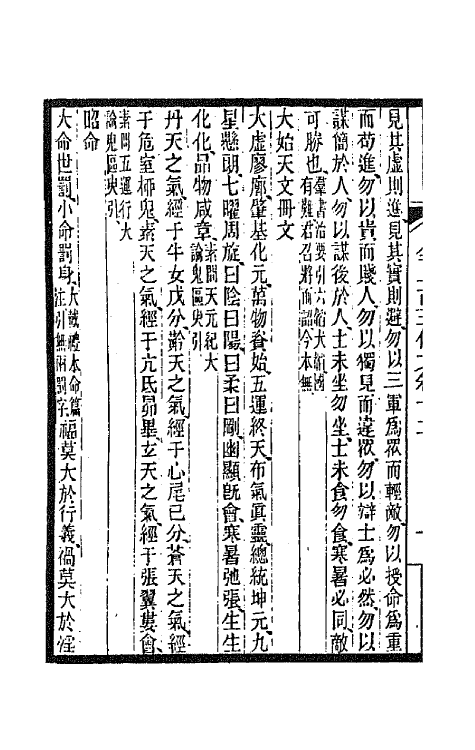 見其虛則進見其實則避勿以三軍為眾而輕敵勿以授命為重
而苟進勿以貴而賤人勿以獨見而違眾勿以辯士為必然勿以
謀簡於人勿以謀後於人士未坐勿坐士未食勿食寒暑必同敵
可勝也羣書治要引六韜國有難君召將而詔今本無
大始天文冊文
大虛廖廓肇基化元萬物資始五運終天布氣真靈總統坤元九
星懸朗七曜周旋曰陰曰陽曰柔曰剛幽顯既會寒暑弛張生生
化化品物咸章素問天元紀大論鬼臾區引
丹天之氣經于牛女戊分黅天之氣經于心尾己分蒼天之氣經
于危室柳鬼素天之氣經于亢氐昴畢玄天之氣經于張翼婁會
素問五運行大論鬼臾區引
昭命
大命世罰小命罰身大戴禮本命篇注引無兩罰字福莫大於行義禍莫大於淫